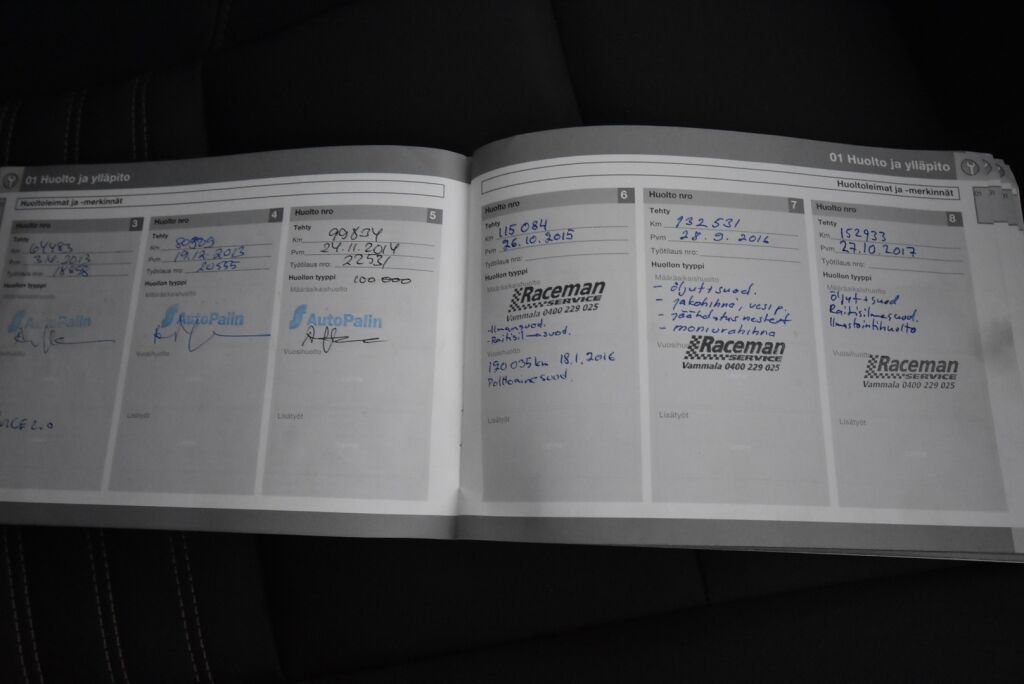 01 Huolto ja ylläpito
Huoltoleimat ja -merkinnät
Huolto nro 3
Tehty
Km 64483
Pvm
Työtilaus nro:
Huollon tyyppi
Määräaikaishuolto
AutoPalin
Vuosihuolto
Huolto nro 4
Tehty
Km
Pvm 19.12.2013
Työtilaus nro: 20555
Huollon tyyppi
Määräaikaishuolto
AutoPalin
Vuosihuolto
Lisätyöt
Huolto nro 5
Tehty
Km 99834
Pvm 24.11.2014
Työtilaus nro: 22531
Huollon tyyppi 100 000
Määräaikaishuolto
AutoPalin
Vuosihuolto
Lisätyöt
01 Huolto ja ylläpito
Huoltoleimat ja -merkinnät
Huolto nro 6
Tehty
Km 115 084
Pvm 26.10.2015
Työtilaus nro:
Huollon tyyppi
Määräaikaishuolto
Raceman
SERVICE
Vammala 0400 229 025
- Ilmansuod.
- Raitisilmasuod.
Vuosihuolto
120 035 km 18.1.2016
Polttoainesuod.
Lisätyöt
Huolto nro 7
Tehty
Km 132 531
Pvm 28.9.2016
Työtilaus nro:
Huollon tyyppi
Määräaikaishuolto
- öljyt + suod.
- jakohihna, vesip.
- jäähdytysnesteet
- moniurahihna
Raceman
SERVICE
Vuosihuolto
Vammala 0400 229 025
Lisätyöt
Huolto nro 8
Tehty
Km 152933
Pvm 27.10.2017
Työtilaus nro:
Huollon tyyppi
Määräaikaishuolto
öljyt + suod
Raitisilmasuod.
Ilmastointihuolto
Vuosihuolto
Raceman
SERVICE
Vammala 0400 229 025
Lisätyöt